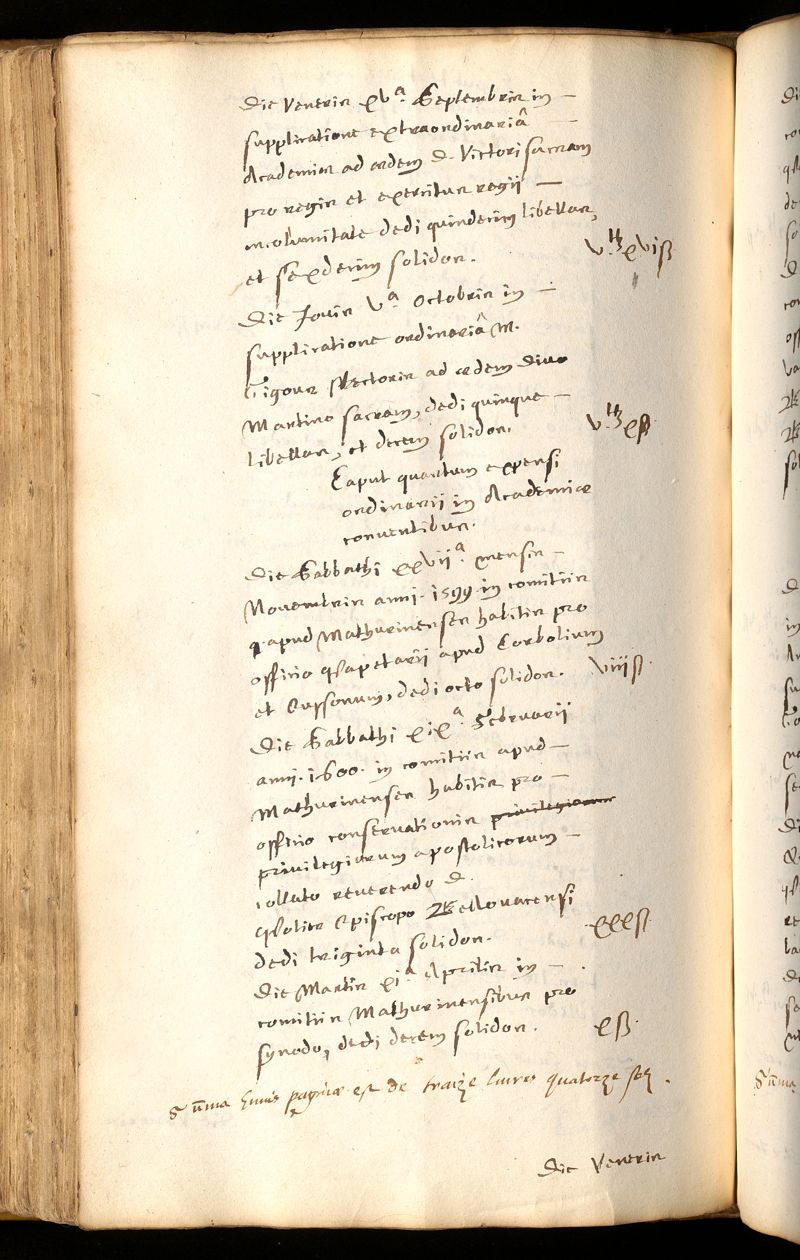 Die Veneris xvª. Septembris in —
supplicatione extraordinariâ —
Academiæ ad ædem D. Victori sacram
pro regis et exercitus regii —
incolumitate dedi quindecim libellas,
et sexdecim solidos. v.tt xvi ß
Die Jovis vª. Octobris in —
supplicatione ordinariâ M.
Gigour Rectoris ad ædem Divo
Martino sacram, dedi quinque —
libellas, et decem solidos. v.tt x ß.
Caput quartum expensi
ordinarii in Academiæ
conventibus.
Die Sabbathi xxviiª. mensis —
Novembris anni. 1599. in comitiis
apud Mathurinenses habitis pro
officio apud Corbolium
et dedi octo solidos. viii ß.
Die Sabbathi xixª. Februarii
anni. 1600. in comitiis apud —
Mathurinenses habitis pro —
officio conservationis privilegiorum
privilegiorum apostolicorum —
collato reverendo D.
Episcopo Bellovacensi
dedi triginta solidos. xxx ß.
Die Martis xiª. Aprilis in —
comitiis Mathurinensibus pro
synodo, dedi decem solidos. x ß.
Sūma huius paginæ est de traize livres quatorze solz.
Die Veneris